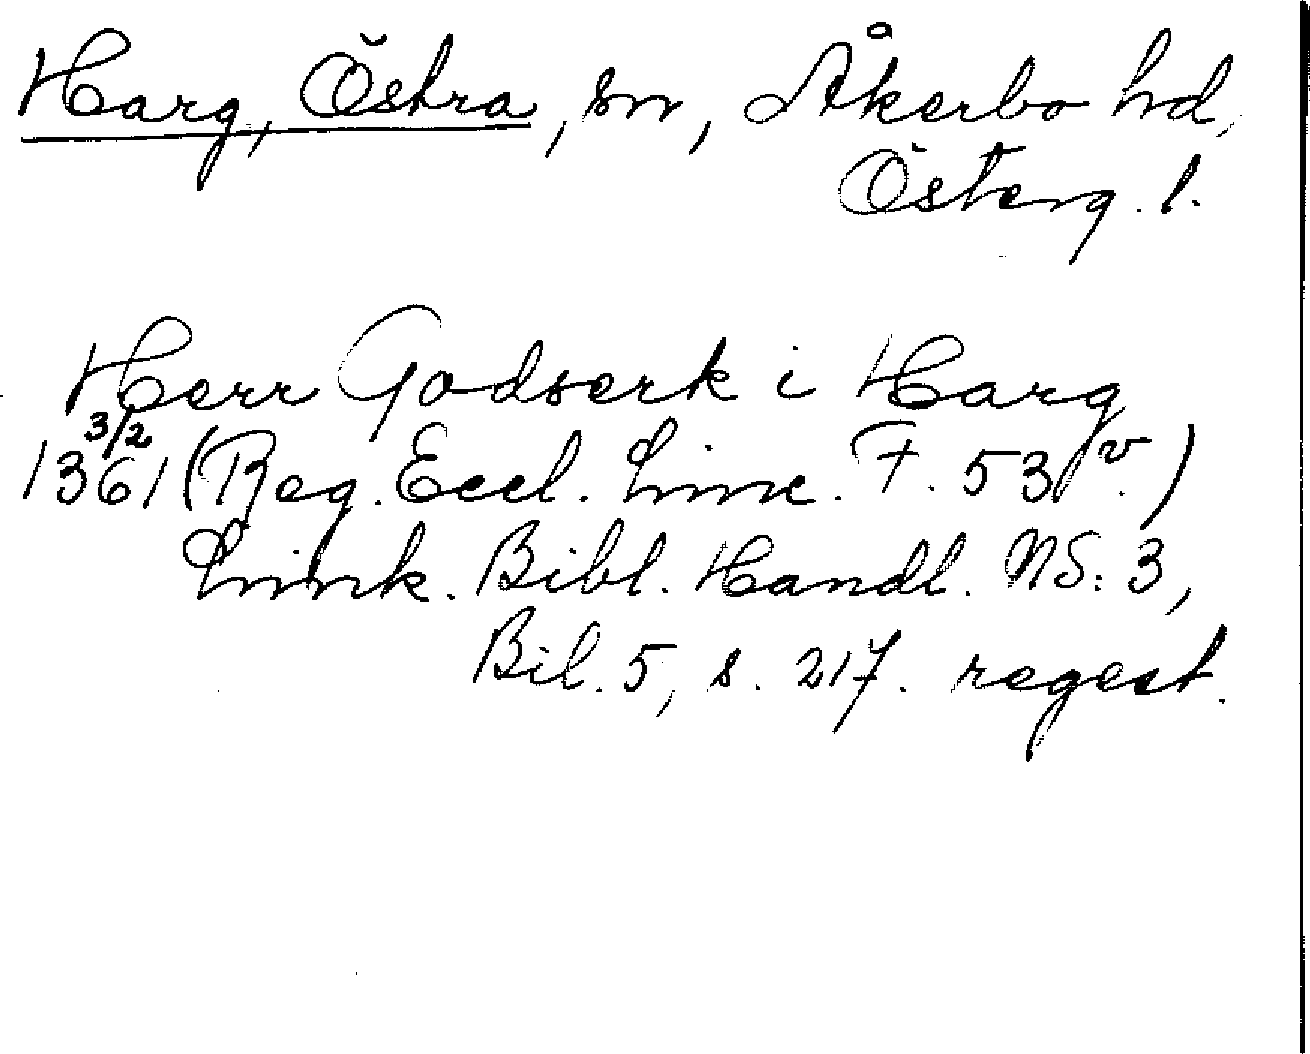 Harg, Östra, sn, Åkerbo hd,
Österg. l.
Herr Godserk i Harg
3/2
1361 (Reg. Eccl. Linc. F. 53 v.)
Link. Bibl. Handl. NS: 3,
Bil. 5, s. 217. regest.